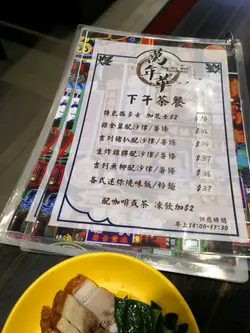 萬年華
下午茶餐
特色西多士 加芝士$2
雞全翼配沙律/薯條
吉列豬扒配沙律/薯條 $36
生炸雞髀配沙律/薯條 $37
吉列魚柳配沙律/薯條 $37
各式迷你燒味飯/粉麵 $37
配咖啡或茶 凍飲加$2
供應時間
早上14:00-17:30